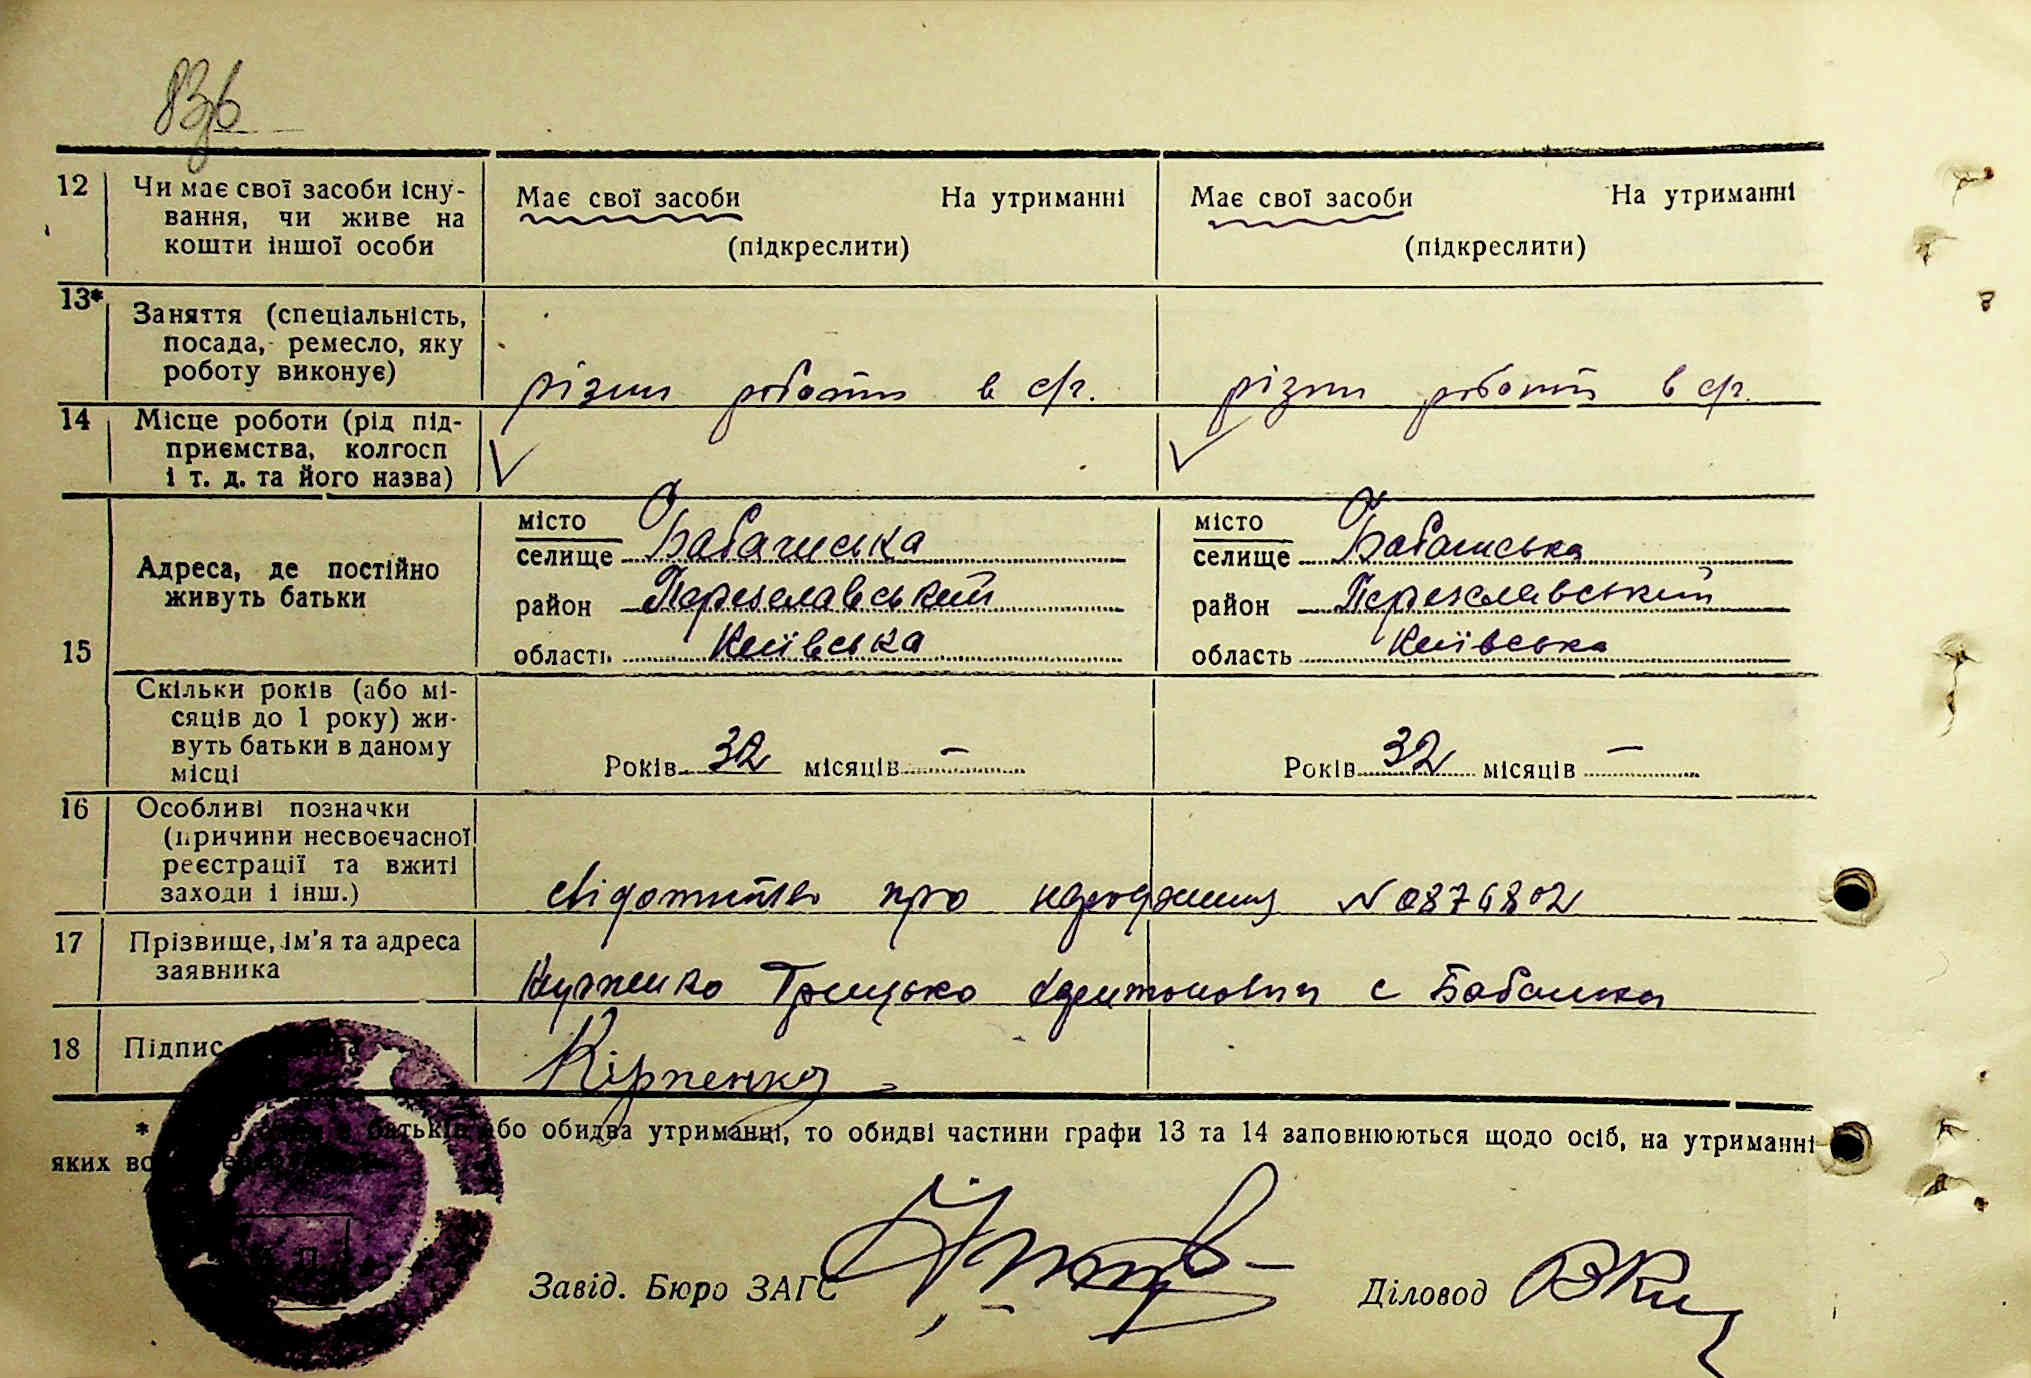 836
12 Чи має свої засоби існу-
вання, чи живе на
кошти іншої особи
Має свої засоби На утриманні
(підкреслити)
Має свої засоби На утриманні
(підкреслити)
13* Заняття (спеціальність,
посада, ремесло, яку
роботу виконує)
різни роботи в с/г.
різни роботи в с/г.
14 Місце роботи (рід під-
приємства, колгосп
і т. д. та його назва)
15
Адреса, де постійно
живуть батьки
місто
селище Бабачиська
район Переяславський
область Київська
місто
селище Бабачиська
район Переяславський
область Київська
Скільки років (або мі-
сяців до 1 року) жи-
вуть батьки в даному
місці
Років 32 місяців –
Років 32 місяців –
16 Особливі позначки
(причини несвоєчасної
реєстрації та вжиті
заходи і інш.)
свідотство про народження N 0874802
17 Прізвище, ім'я та адреса
заявника
Грицько Харитонович с
18 Підпис
Кірпенко
* батьків або обидва утриманці, то обидві частини графи 13 та 14 заповнюються щодо осіб, на утриманні
яких
Завід. Бюро ЗАГС
Діловод